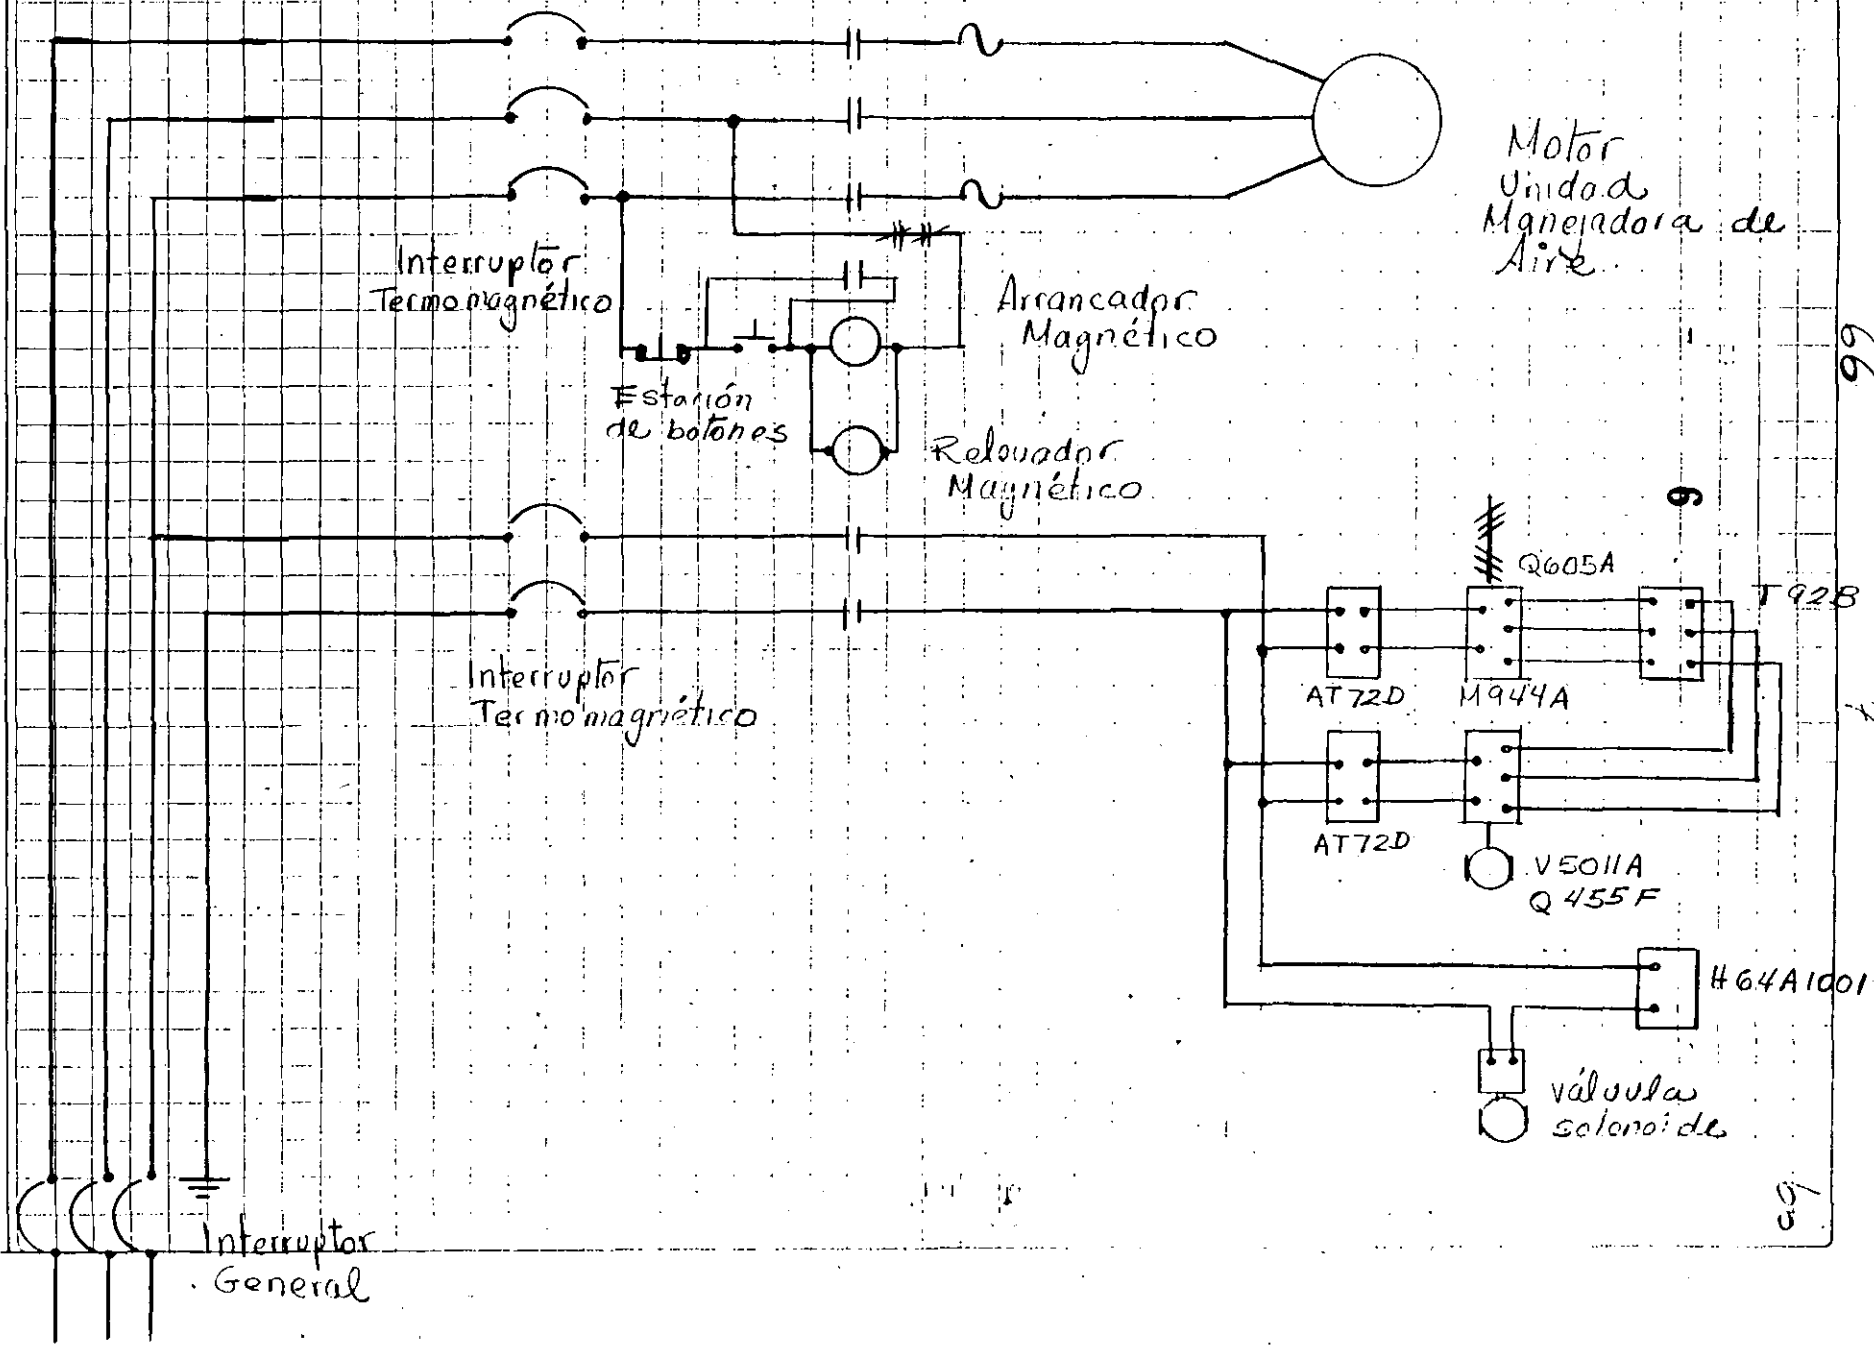 Motor
Unidad
Manejadora de
Aire
Interruptor
Termomagnético
Arrancador
Magnético
66
Estación
de botones
Relevador
Magnético
9
Q605A
T92B
Interruptor
Termomagnético
AT72D
M944A
AT72D
V5011A
Q455F
H64A1001
válvula
solonoide
Interruptor
General